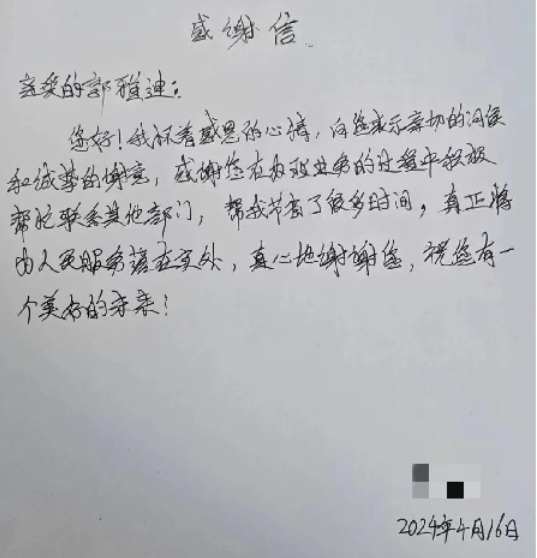 感谢信
尊敬的郜雅迪:
您好!我怀着感恩的心情,向您表示亲切的问侯
和诚挚的谢意,感谢您在办理业务的过程中积极
帮忙联系其他部门,帮我节省了很多时间,真正将
为人民服务落在实处,真心地谢谢您,祝您有一
个美好的未来!
2024年4月16日